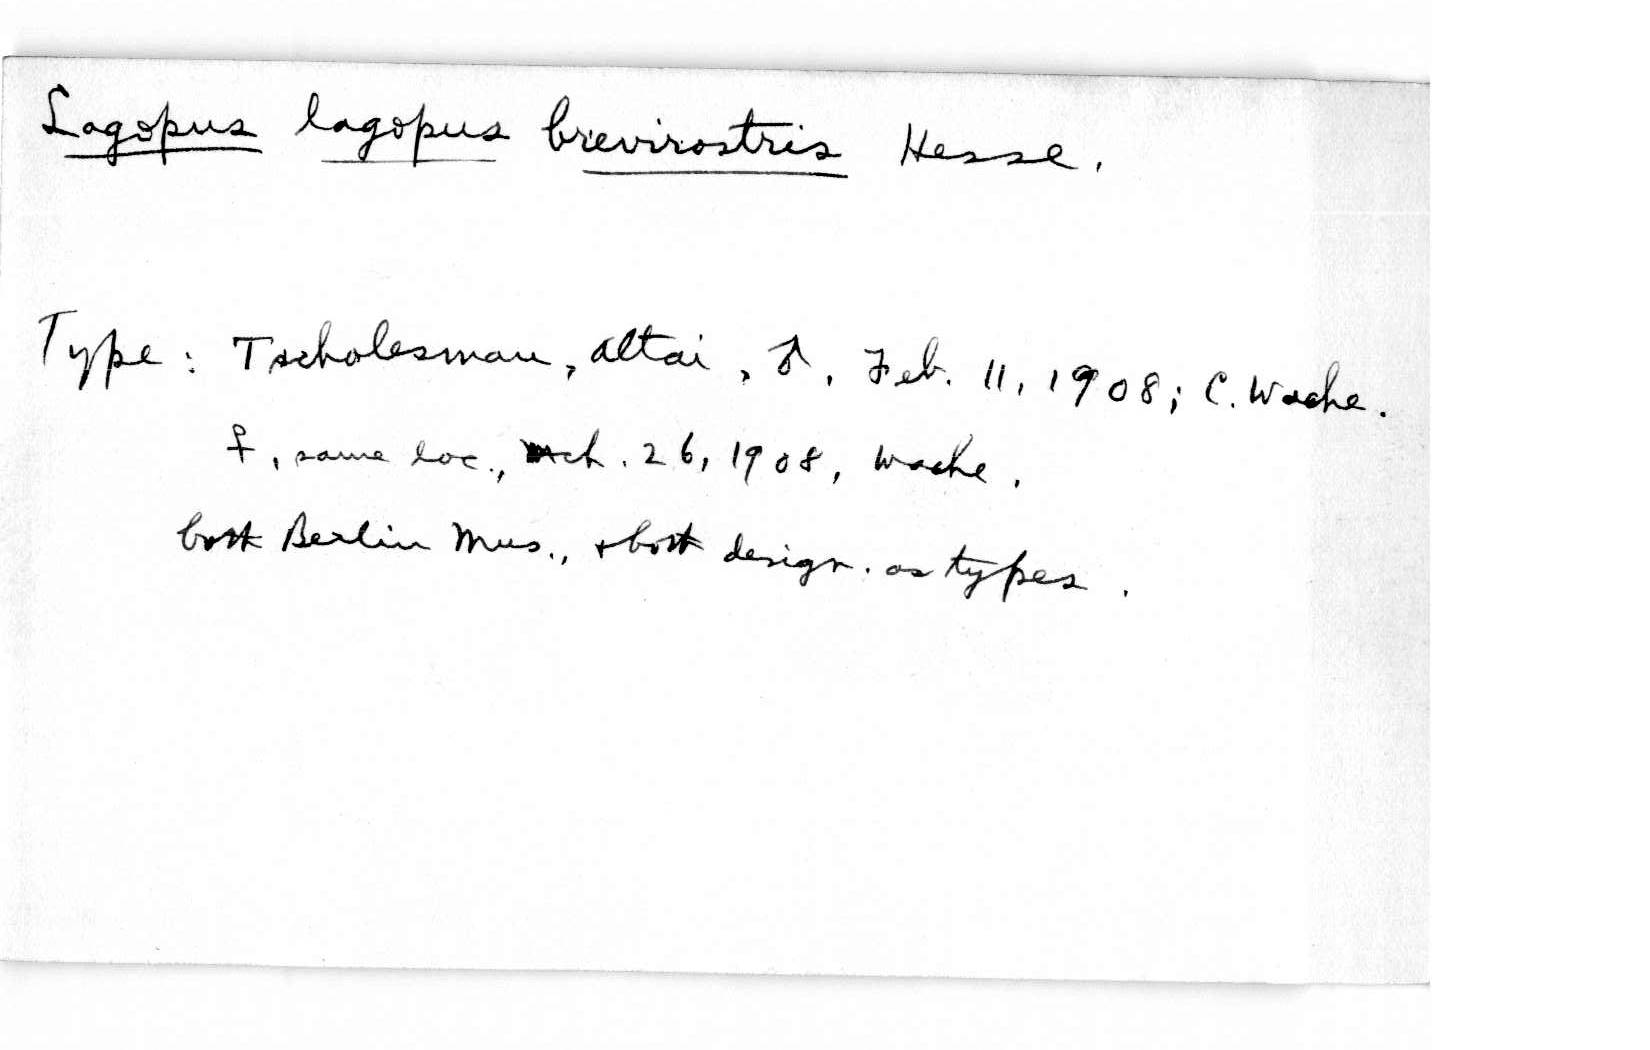 Lagopus lagopus brevirostris Hesse.
Type: Tscholesman, Altai, ♂, Feb. 11, 1908; C. Wache.
♀, same loc., Mch. 26, 1908, Wache.
both Berlin Mus., & both design. as types.